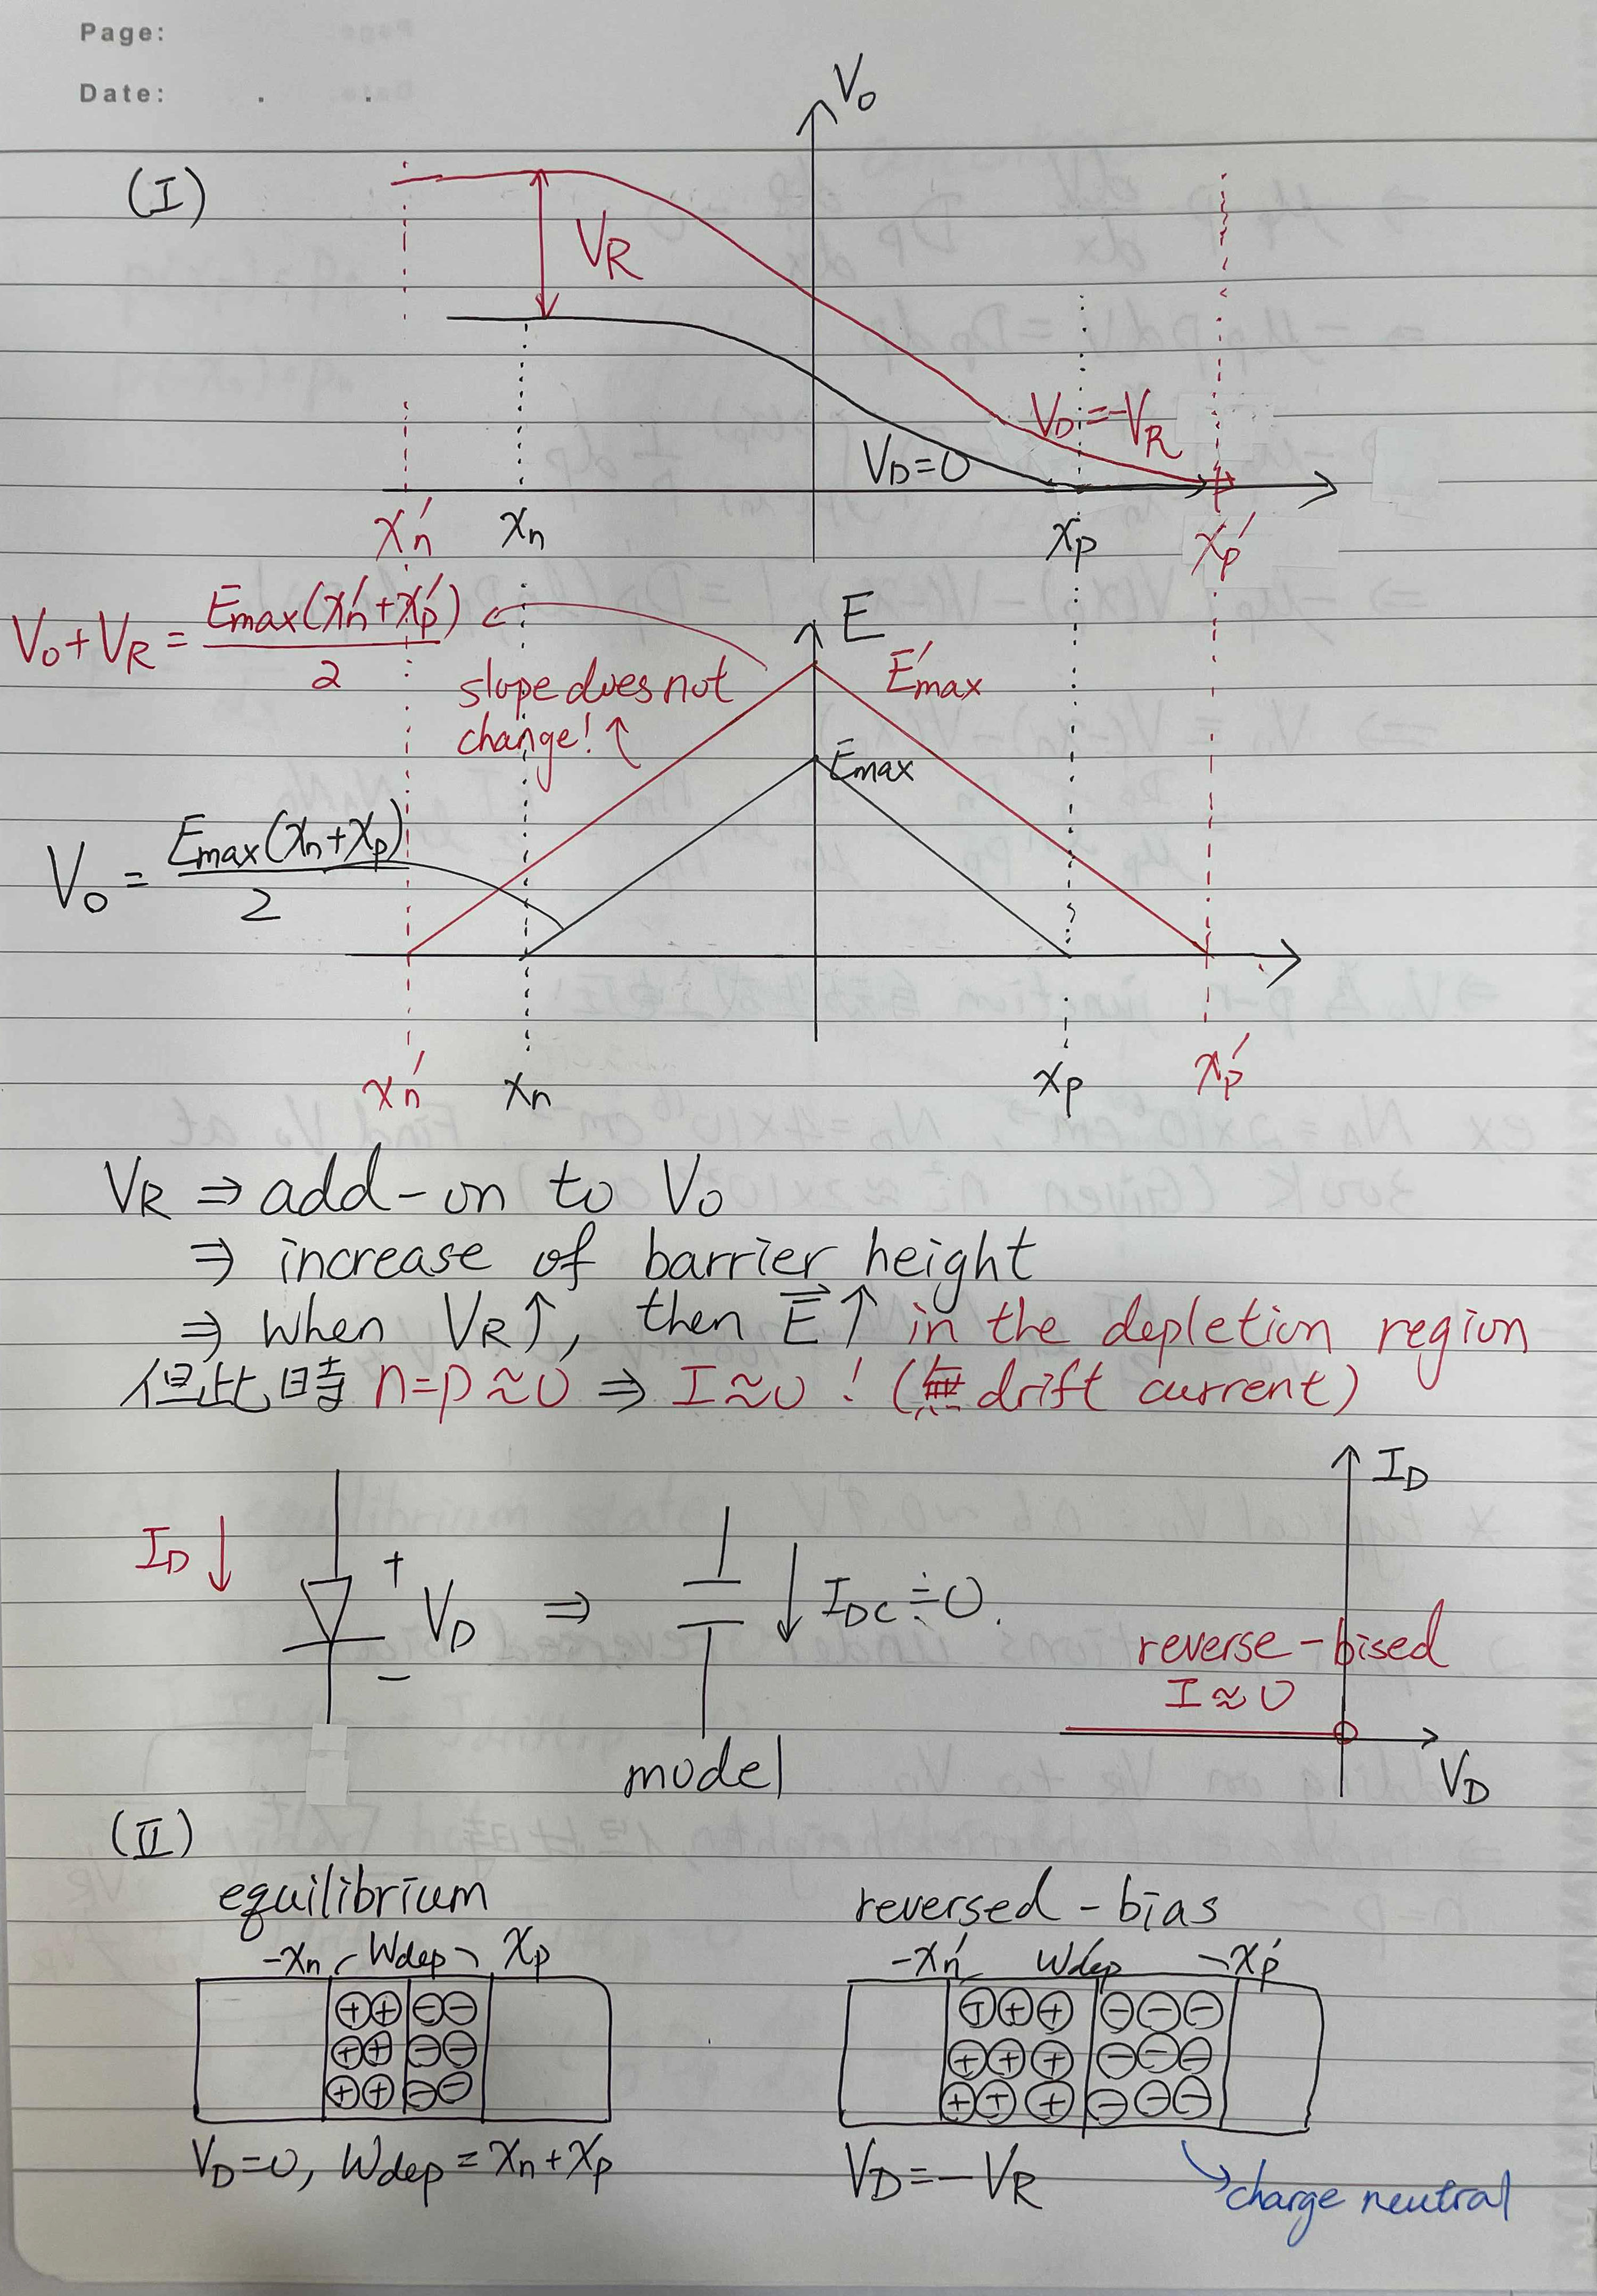 Page:
Date: . .
V₀
(I)
V_R
V_D=-V_R
V_D=0
xₙ' xₙ x_p x_p'
V₀+V_R = Emax(xₙ'+x_p')/2
E
E'max
slope does not
change! ↑
Emax
V₀ = Emax(xₙ+x_p)/2
xₙ' xₙ x_p x_p'
V_R ⇒ add-on to V₀
⇒ increase of barrier height
⇒ when V_R↑, then E⃗↑ in the depletion region
但此時 n=p≈0 ⇒ I≈0 ! (無 drift current)
I_D
I_D ↓ + V_D - ⇒ ↓ I_DC≒0.
reverse-bised
I≈0
model
V_D
(II)
equilibrium reversed-bias
-xₙ Wdep x_p -xₙ' Wdep x_p'
++-- +++---
++-- +++---
++-- +++---
V_D=0, Wdep=xₙ+x_p V_D=-V_R
charge neutral